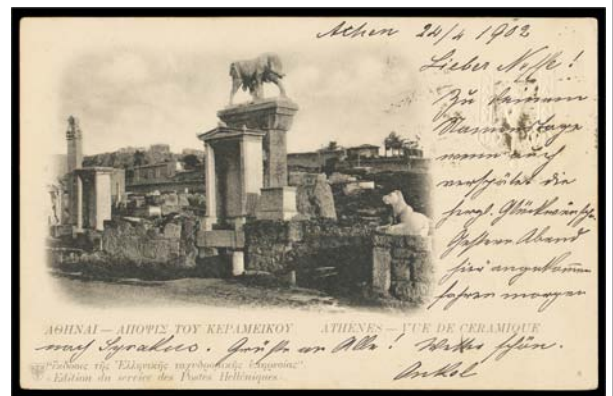 Athen 24/4 1902
Lieber Neffe!
Zu Deinem
Namenstage
wenn auch
verspätet die
herzl. Glückwünsche.
Gestern Abend
hier angekommen
fahren morgen
ΑΘΗΝΑΙ — ΑΠΟΨΙΣ ΤΟΥ ΚΕΡΑΜΕΙΚΟΥ ATHÈNES — VUE DE CERAMIQUE
nach Syrakus. Grüße an Alle! Wetter schön.
Ἔκδοσις τῆς Ἑλληνικῆς ταχυδρομικῆς ὑπηρεσίας
Edition du service des Postes Helléniques
Onkel